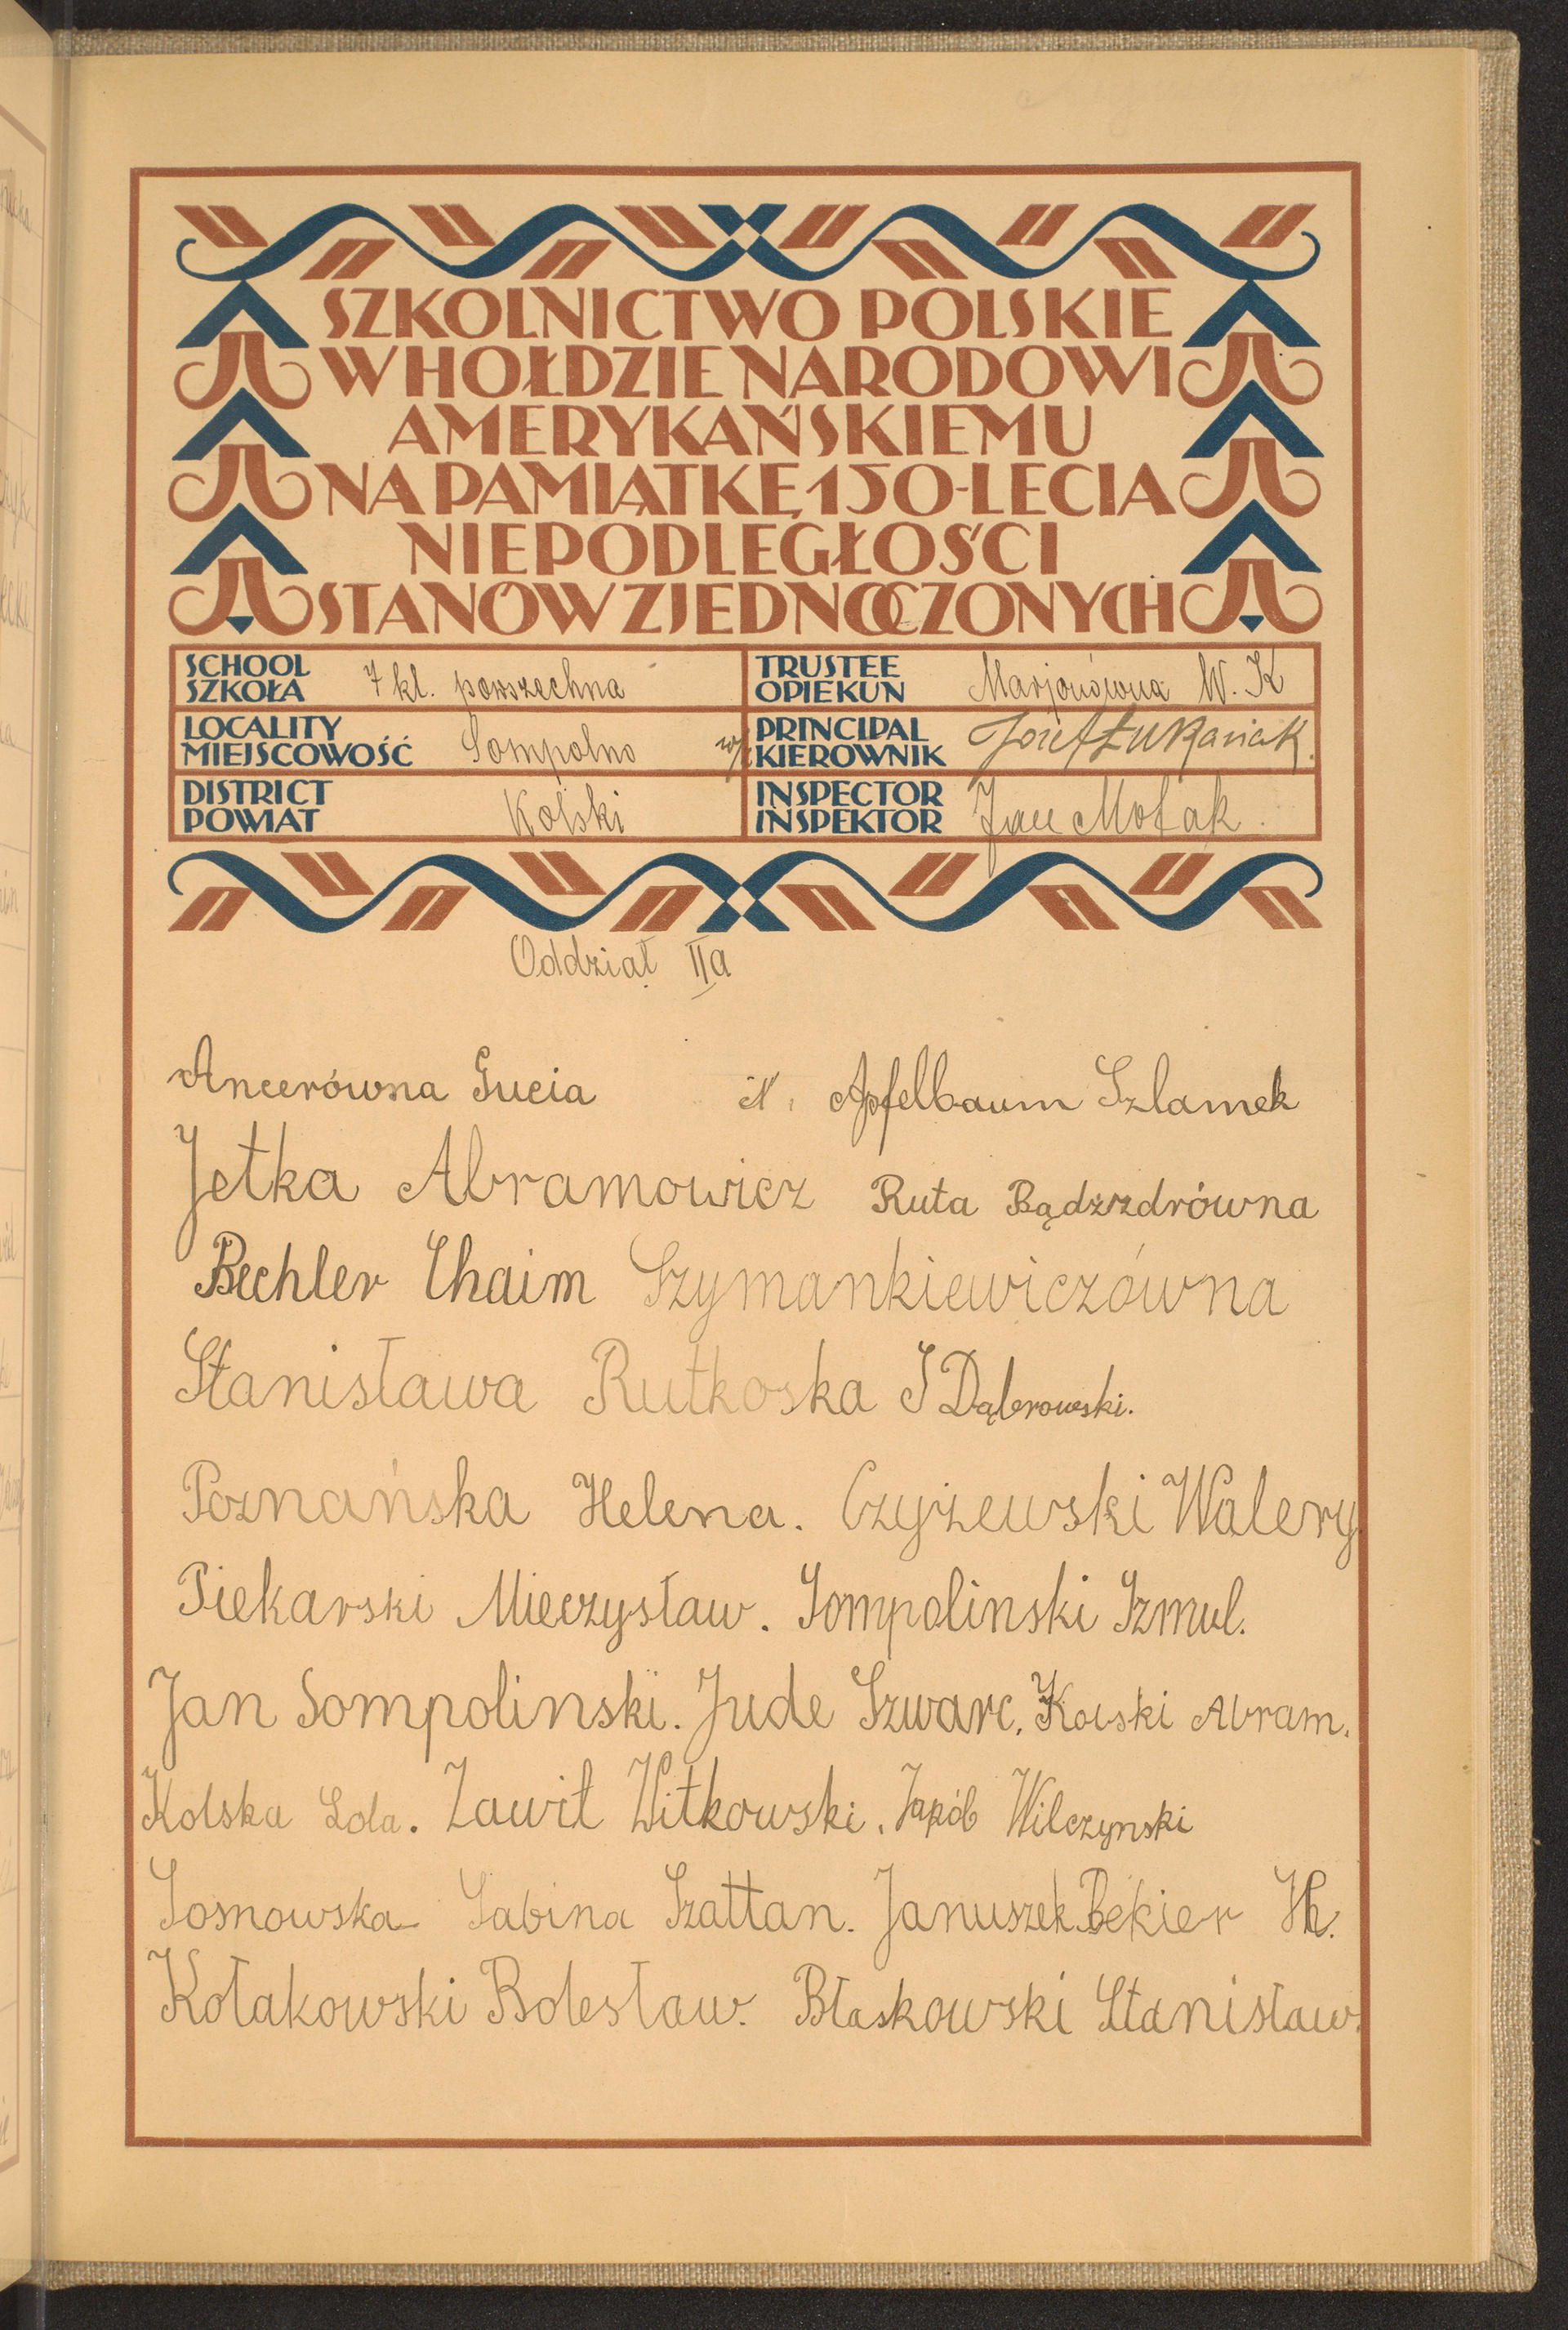 SZKOLNICTWO POLSKIE
W HOŁDZIE NARODOWI
AMERYKAŃSKIEMU
NA PAMIĄTKĘ 150-LECIA
NIEPODLEGŁOŚCI
STANÓW ZJEDNOCZONYCH
SCHOOL
SZKOŁA 7 kl. powszechna
TRUSTEE
OPIEKUN Marjonówna W. K
LOCALITY
MIEJSCOWOŚĆ Sompolno
PRINCIPAL
KIEROWNIK Józef Łukasiak.
DISTRICT
POWIAT Kolski
INSPECTOR
INSPEKTOR Jan
Oddział IIa
Ancerówna Gucia Apfelbaum Szlamek
Jetka Abramowicz Ruta Bądzzdrówna
Bechler Chaim Szymankiewiczówna
Stanisława Rutkoska J Dąbrowski.
Poznańska Helena. Czyżewski Walery.
Piekarski Mieczysław. Sompolinski Szmul.
Jan Sompolinski. Jude Szwarc. Kolski Abram.
Kolska Lola. Zawił Witkowski. Jakób Wilczynski
Sosnowska Sabina Szattan. Januszek Bekier
Kołakowski Bolesław. Błaskowski Stanisław.